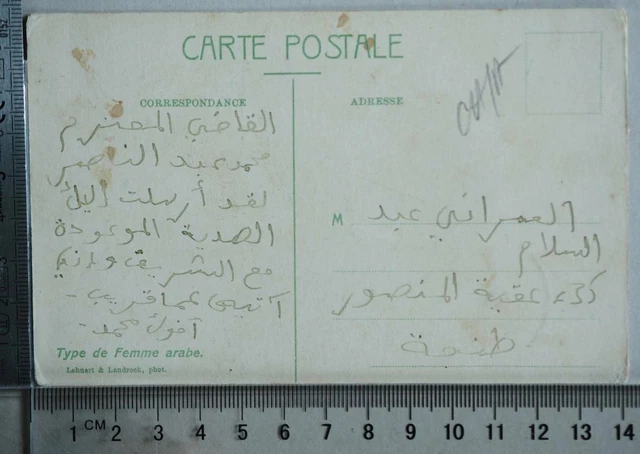 CARTE POSTALE
CORRESPONDANCE
القاضي المحترم
محمد عبد الناصر
لقد أرسلت إليك
الهدية الموعودة
مع الشريف وإني
آتيكم عما قريب -
محمد -
Type de Femme arabe.
Lehnert & Landrock, phot.
ADRESSE
M العمراني عبد
السلام
عقبة المنصور
طنجة
1 CM 2 3 4 5 6 7 8 9 10 11 12 13 14